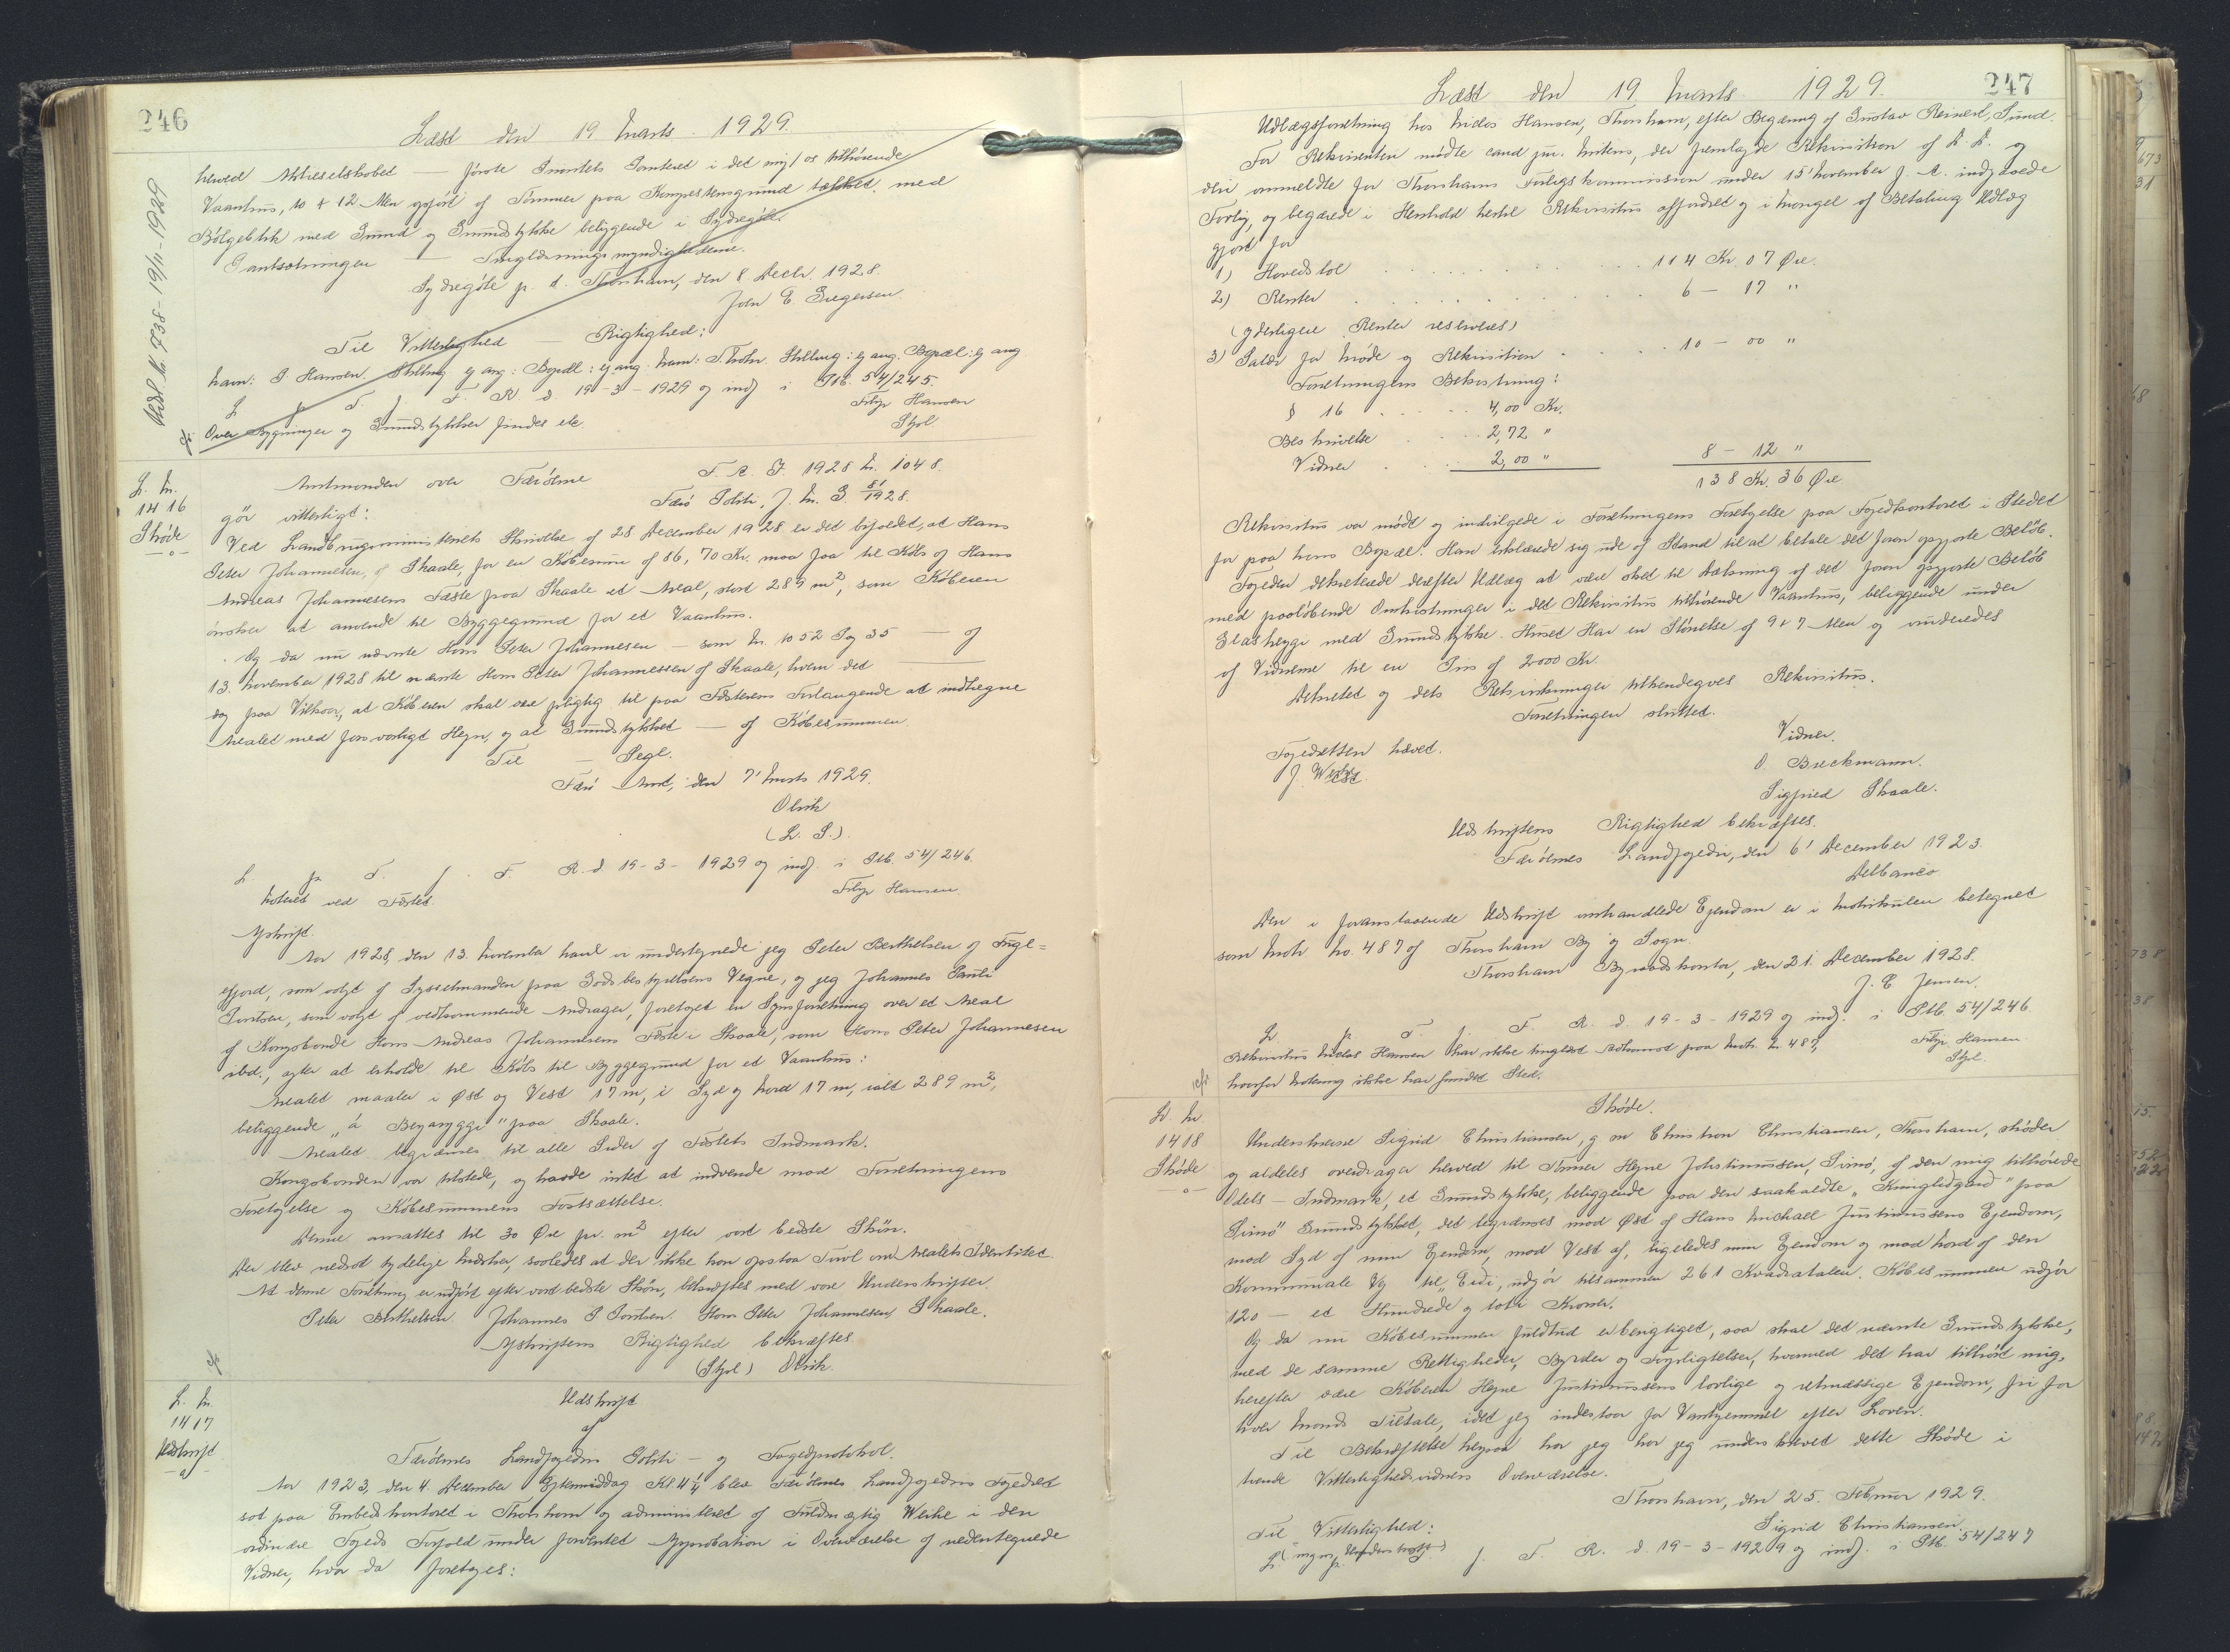 246
Læst den 19. Marts 1929.
herved Aktieselskabet — første Prioritets Panteret i det mig/os tilhørende
Vaanhus, 10 + 12 Alen opført af Tømmer paa Kampestensgrund tækket med
Bølgeblik med Grund og Grundstykke beliggende i Sydregøte.
Pantsætningen — Tinglæsningsmyndighederne.
Sydregøte p. t. Thorshavn, den 8 Decbr. 1928.
Joen E. Gregersen.
Til Vitterlighed — Rigtighed:
Navn: P. Hansen. Stilling ej ang: Bopæl: ej ang. Navn: Stilling: ej ang. Bopæl: ej ang
L. p. T. f. F. R. d. 19-3-1929 og indf. i Ptb. 54/245.
Filip Hansen
Over Bygningen og Grundstykker findes etc
Stpl
Udsl. 19/11-1959
L. Nr.
1416
Skøde
Amtmanden over Færøerne
F. A. J. 1928 Nr. 1048.
Færø Politi, J. Nr. G. 81/1928.
gør vitterligt:
Ved Landbrugsministeriets Skrivelse af 28 December 1928 er det bifaldet, at Hans
Peter Johannesen, af Skaale, for en Købesum af 86,70 Kr. maa faa til Købs af Hans
Andreas Johannesens Fæste paa Skaale et Areal, stort 289 m², som Køberen
ønsker at anvende til Byggegrund for et Vaanhus.
Og da nu nævnte Hans Peter Johannesen — som Nr. 1052 Pag 35 — og
13. November 1928 til nævnte Hans Peter Johannessen af Skaale, hvem det —
dog paa Vilkaar, at Køberen skal være pligtig til paa Fæsterens Forlangende at indhegne
Arealet med forsvarligt Hegn, og at Grundstykket — af Købesummen.
Til — Segl.
Færø Amt, den 7' Marts 1929.
Olrik
(L. S.)
L. p. T. f. F. R. d. 19-3-1929 og indf. i Ptb. 54/246.
Noteret ved Fæstet.
Filip Hansen
Afskrift.
Aar 1928, den 13. November have vi undertegnede jeg Peter Berthelsen af Fugle=
fjord, som valgt af Sysselmanden paa Godsbestyrelsens Vegne, og jeg Johannes Pauli
Poulsen, som valgt af vedkommende Andrager, foretaget en Synsforretning over et Areal
af Kongsbonde Hans Andreas Johannesens Fæste i Skaale, som Hans Peter Johannesen
ibd., agter at erholde til Købs til Byggegrund for et Vaanhus:
Arealet maaler i Øst og Vest 17 m, i Syd og Nord 17 m, ialt 289 m²,
beliggende „á Begaryggi" paa Skaale.
Arealet begrænses til alle Sider af Fæstets Indmark.
Kongsbonden var tilstede, og havde intet at indvende mod Forretningens
Foretagelse og Købesummens Fastsættelse.
Denne ansattes til 30 Øre pr. m² efter vort bedste Skøn.
Der blev nedsat tydelige Mærker, saaledes at der ikke kan opstaa Tvivl om Arealets Identitet.
At denne Forretning er udført efter vort bedste Skøn, bekræftes med vore Underskrifter.
Peter Berthelsen. Johannes P. Poulsen. Hans Peter Johannesen, Skaale.
Afskriftens Rigtighed bekræftes.
(Stpl) Olrik.
L. Nr.
1417
Udskrift
Udskrift
af
Færøernes Landfogeders Politi- og Fogedprotokol.
Aar 1923, den 4. December Eftermiddag Kl. 4¼ blev Færøernes Landfogeders Fogedret
sat paa Embedskontoret i Thorshavn og administreret af Fuldmægtig Weihe i den
ordinære Fogeds Forfald under forventet Approbation i Overværelse af nedentegnede
Vidner, hvor da foretages:
247
Læst den 19 Marts 1929.
Udlægsforretning hos Niclas Hansen, Thorshavn, efter Begæring af Gustav Reinert, Sund.
For Rekvirenten mødte cand. jur. Mitens, der fremlagde Rekvisition af D. D. og
den anmeldte for Thorshavns Forligskommission under 15' November f. A. indgaaede
Forlig, og begærede i Henhold hertil Rekvisitus affordret og i Mangel af Betaling Udlæg
gjort for
1) Hovedstol . . . . . 114 Kr. 07 Øre.
2) Renter . . . . . 6 — 17 "
(yderligere Renter reserveres)
3) Salær for Møde og Rekvisition . . . 10 — 00 "
Forretningens Bekostning:
§ 16 . . . . 4,00 Kr.
Beskrivelse . . . 2,72 "
Vidner . . . 2,00 " 8 — 12 "
138 Kr. 36 Øre
Rekvisitus var mødt og indvilgede i Forretningens Foretagelse paa Fogedkontoret i Stedet
for paa hans Bopæl. Han erklærede sig ude af Stand til at betale det foran opgjorte Beløb.
Fogeden dekreterede derefter Udlæg at være sket til Dækning af det foran opgjorte Beløb
med paaløbende Omkostninger i det Rekvisitus tilhørende Vaanhus, beliggende under
Glasheyggi med Grundstykke. Huset har en Størrelse af 9 + 7 Alen og vurderedes
af Vidnerne til en Pris af 2000 Kr.
Dekretet og dets Retsvirkninger tilkendegaves Rekvisitus.
Forretningen sluttet.
Fogedretten hævet.
J. Weihe.
Vidner.
O. Breckmann.
Sigfried Skaale.
Udskriftens Rigtighed bekræftes.
Færøernes Landfogederi, den 6' December 1923.
Delbanco
Den i foranstaaende Udskrift omhandlede Ejendom er i Matrikulen betegnet
som Matr. No. 487 af Thorshavn By og Sogn.
Thorshavn Byraadskontor, den 21. December 1928.
J. E. Jensen.
L. p. T. f. F. R. d. 19-3-1929 og indf. i Ptb. 54/246
Rekvisitus Niclas Hansen har ikke tinglæst Adkomst paa Matr. Nr. 487,
Filip Hansen
hvorfor Notering ikke har fundet Sted.
Stpl.
L. Nr
1418
Skøde
Skøde.
Underskrevne Sigrid Christiansen, g. m. Christian Christiansen, Thorshavn, skøder
og aldeles overdrager herved til Hejne Justinussen, Simø, af den mig tilhørende
Odels-Indmark, et Grundstykke, beliggende paa den saakaldte „Kunglidgard" paa
Simø Grundstykket, det begrænses mod Øst af Hans Michael Justinussens Ejendom,
mod Syd af min Ejendom, mod Vest af, ligeledes min Ejendom og mod Nord af den
Kommunale Vej til „Eidi", udgør tilsammen 261 Kvadratalen. Købesummen udgør
120 — et Hundrede og totiv Kroner.
Og da nu Købesummen fuldtud er berigtiget, saa skal det nævnte Grundstykke,
med de samme Rettigheder, Byrder og Forpligtelser, hvormed det har tilhørt mig,
herefter være Køberen Hejne Justinussens lovlige og retmæssige Ejendom, fri for
hver Mands Tiltale, idet jeg indestaar for Vanhjemmel efter Loven.
Til Bekræftelse herpaa har jeg har jeg underskrevet dette Skøde i
tvende Vitterlighedsvidners Overværelse.
Thorshavn, den 25. Februar 1929.
Til Vitterlighed:
Sigrid Christiansen
(ingen Underskrift)
L. p. T. f. F. R. d. 19-3-1929 og indf. i Ptb. 54/247